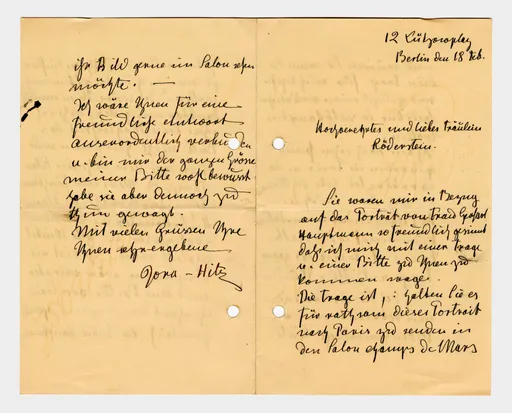 12 Lützowplatz
Berlin den 18 Feb.
Hochverehrtes und liebes Fräulein
Röderstein.
Sie waren mir in Bezug
auf das Porträt von Frau
Hauptmann so freundlich gesinnt
daß ich mich mit einer Frage
u. einer Bitte zu Ihnen zu
kommen wage.
Die Frage ist, : halten Sie es
für rathsam dieses Portrait
nach Paris zu senden in
den Salon champs de Mars
ihr Bild gerne im Salon sehen
möchte. —
Ich wäre Ihnen für eine
freundliche Antwort
ausserordentlich verbunden
u. bin mir der ganzen Grösse
meiner Bitte wohl bewusst
habe sie aber dennoch zu
thun gewagt.
Mit vielen Grüssen Ihre
Ihnen sehr ergebene
Dora - Hitz